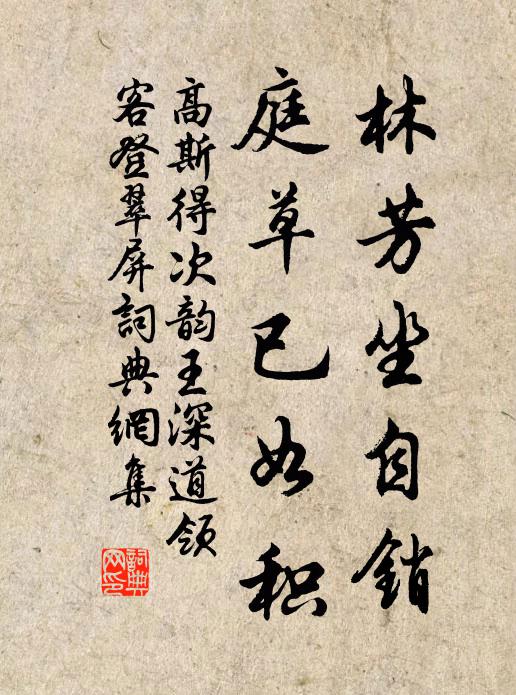 林芳坐自銷
庭草已如积
高斯得次韵王深道領
客登翠屏詞典網集
詞典網印